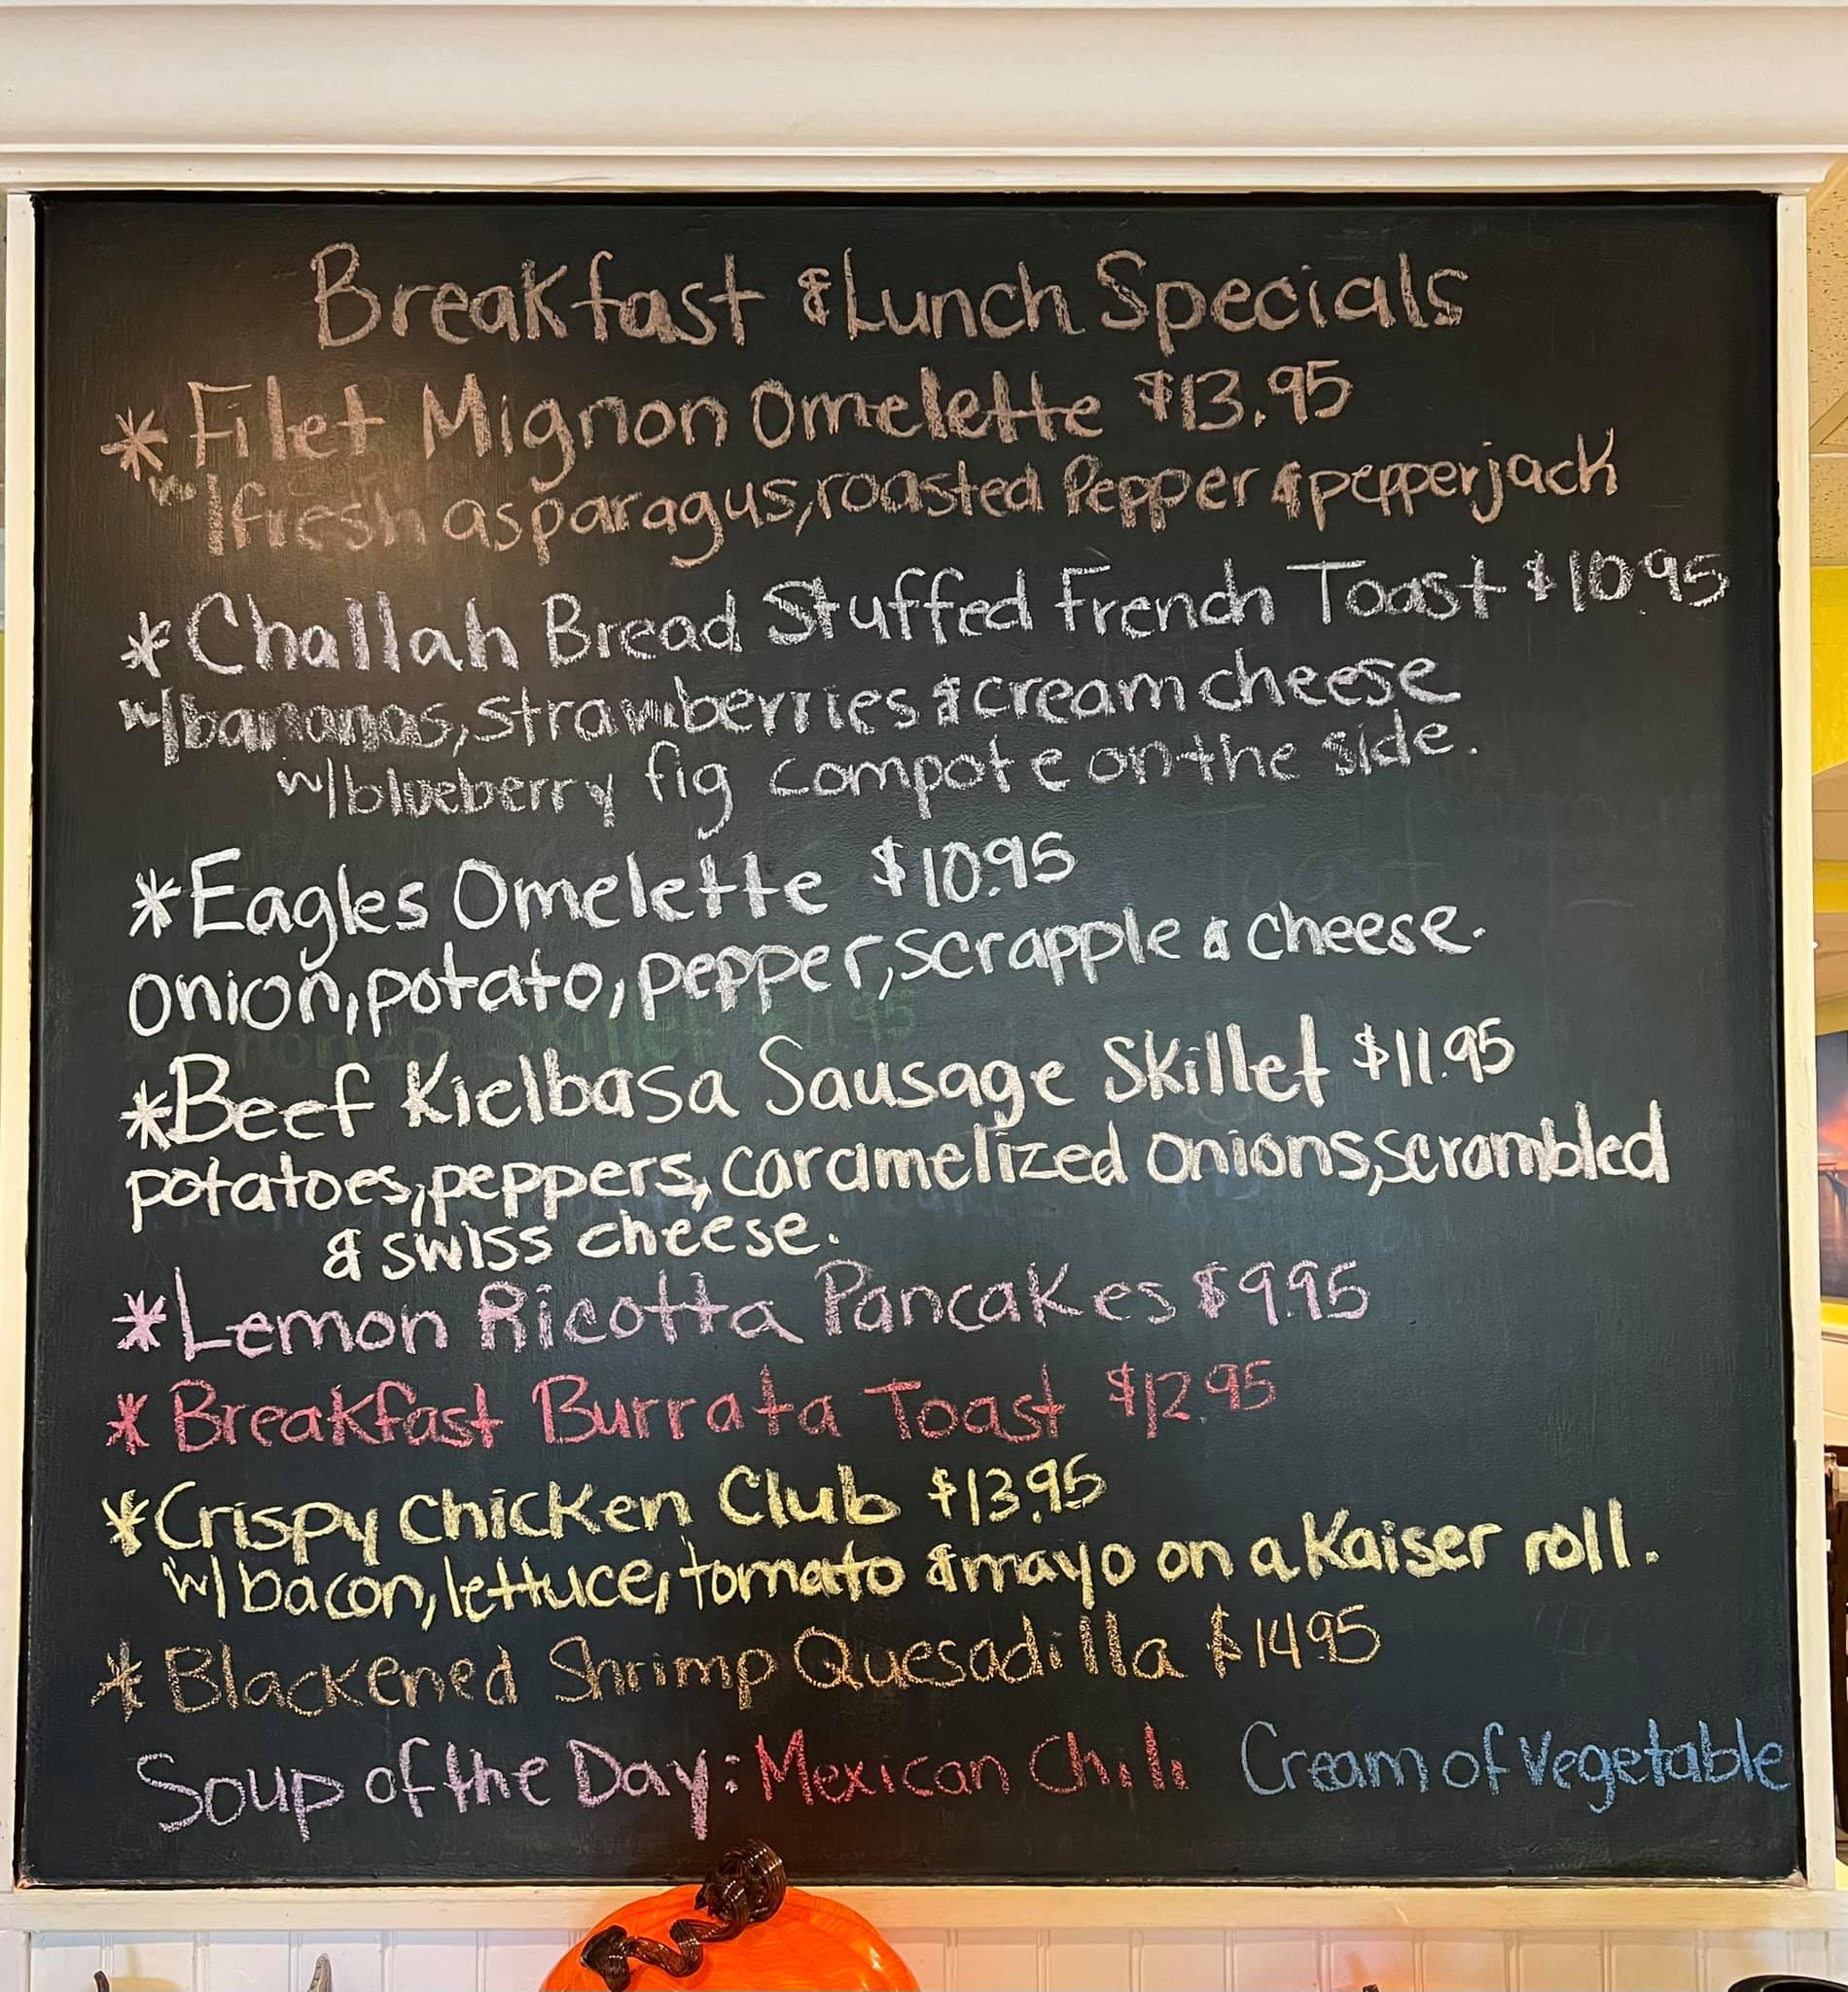 Breakfast & Lunch Specials
* Filet Mignon Omelette $13.95
w/fresh asparagus, roasted Pepper & pepperjack
* Challah Bread Stuffed French Toast $10.95
w/bananas, strawberries & cream cheese
w/blueberry fig compote on the side.
* Eagles Omelette $10.95
onion, potato, pepper, scrapple & cheese.
* Beef Kielbasa Sausage Skillet $11.95
potatoes, peppers, caramelized onions, scrambled
& swiss cheese.
* Lemon Ricotta Pancakes $9.95
* Breakfast Burrata Toast $12.95
* Crispy Chicken Club $13.95
w/ bacon, lettuce, tomato & mayo on a Kaiser roll.
* Blackened Shrimp Quesadilla $14.95
Soup of the Day: Mexican Chili Cream of Vegetable